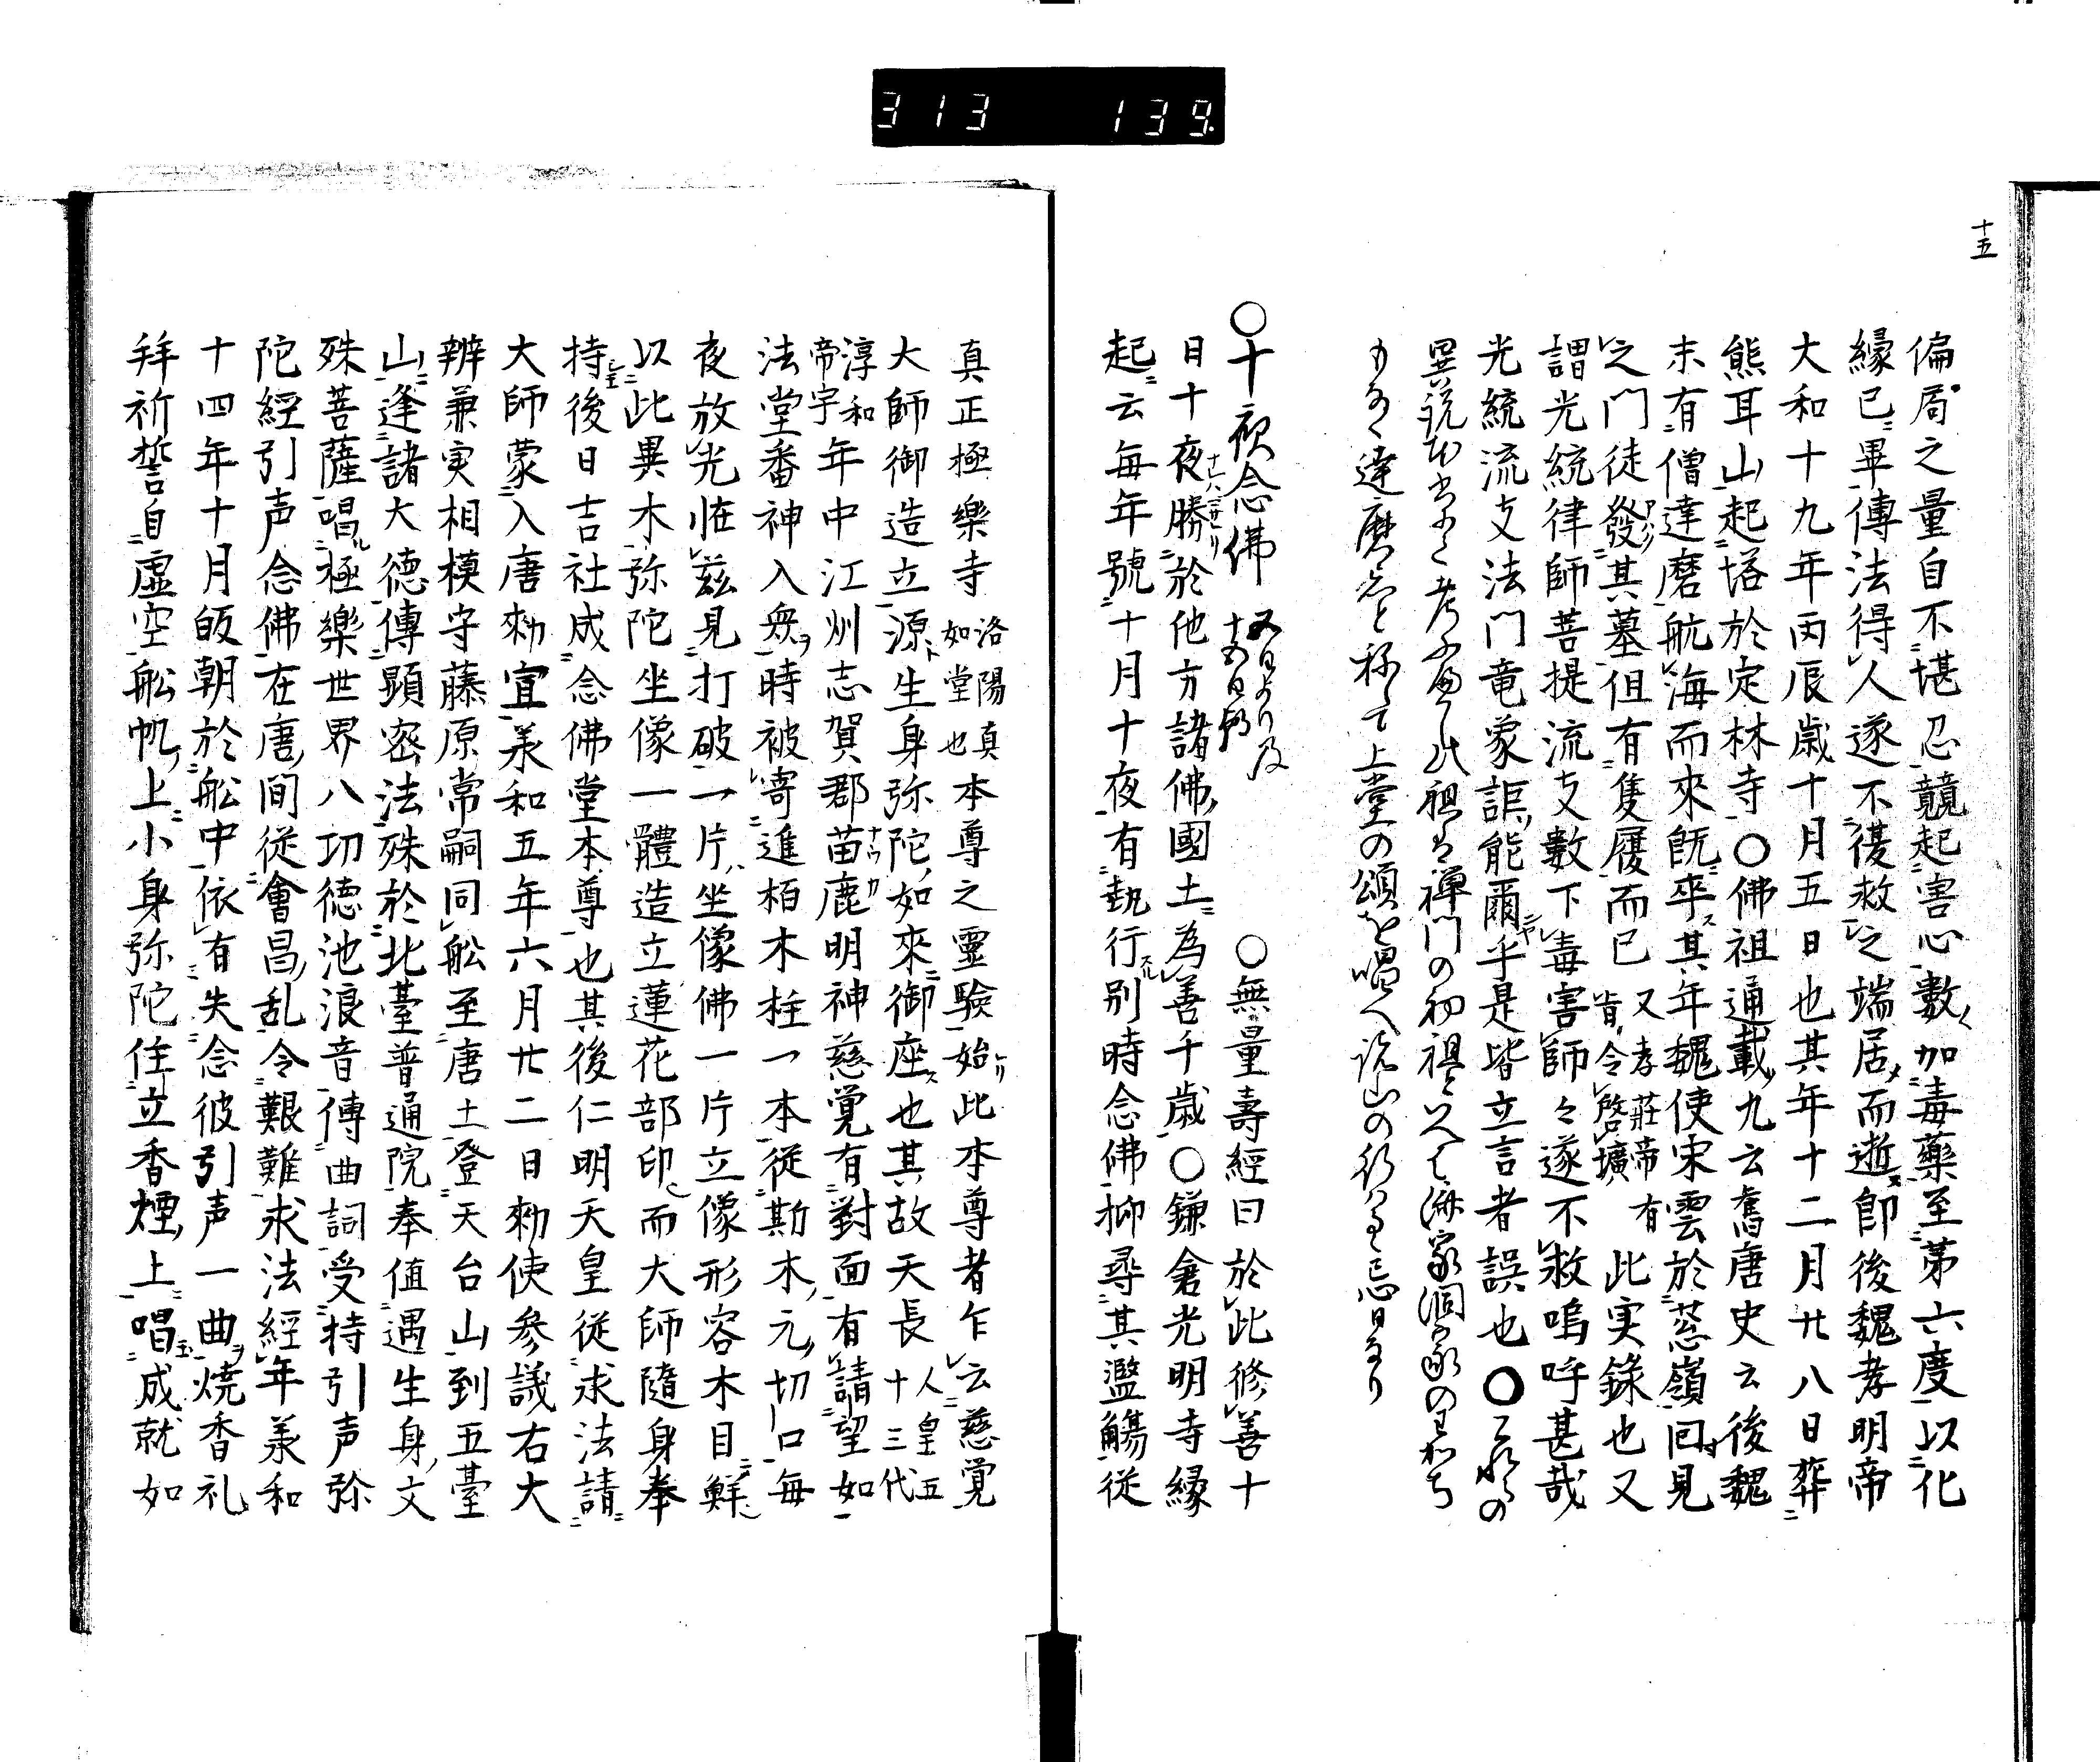 313 139
十五
偏局之量自不堪忍競起害心數加毒藥至第六度以化
縁已畢傳法得人遂不復救之端居而逝即後魏孝明帝
大和十九年丙辰歳十月五日也其年十二月廿八日葬
熊耳山起塔於定林寺○佛祖通載九云舊唐史云後魏
末有僧達磨航海而來既卒其年魏使宋雲於葱嶺回見
之門徒發其墓但有隻履而已又孝莊帝有旨令啓壙此実録也又
謂光統律師菩提流支數下毒害師々遂不救嗚呼甚哉
光統流支法門竜象詎能爾乎是皆立言者誤也○
祖は禅門の初祖
達磨忌と称して上堂の頌を唱へ
○十夜念佛 五日より及十五日朝 ○無量壽經曰於此修善十
日十夜勝於他方諸佛國土為善千歳○鎌倉光明寺縁
起云毎年號十月十夜有執行別時念佛抑尋其濫觴從
真正極樂寺洛陽真如堂也本尊之靈驗始此本尊者乍云慈覚
大師御造立源生身弥陀如來御座也其故天長人皇五十三代
淳和帝宇年中江州志賀郡苗鹿明神慈覚有對面有請望如
法堂番神入衆時被寄進栢木柱一本從斯木元切口毎
夜放光恠茲見打破一片坐像佛一片立像形容木目鮮
以此異木弥陀坐像一體造立蓮花部印而大師隨身奉
持後日吉社成念佛堂本尊也其後仁明天皇從求法請
大師蒙入唐勅宣美和五年六月廿二日勅使参議右大
辨兼実相模守藤原常嗣同舩至唐土登天台山到五臺
山逢諸大德傳顕密法殊於北臺普通院奉値遇生身文
殊菩薩唱極樂世界八功徳池浪音傳曲詞受持引声弥
陀經引声念佛在唐間從會昌乱令艱難求法經年美和
十四年十月皈朝於舩中依有失念彼引声一曲焼香礼
拜祈誓自虚空舩帆上小身弥陀住立香煙上唱成就如